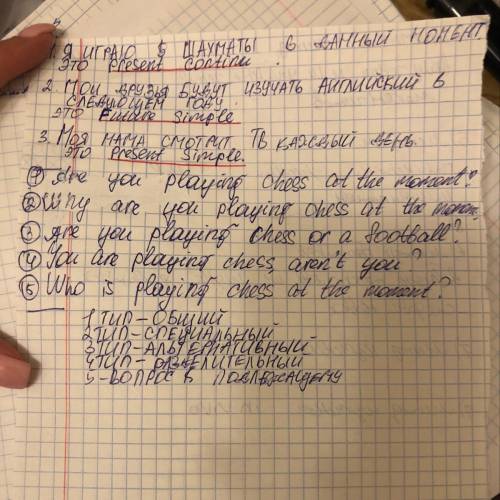 1. Я ИГРАЮ В ШАХМАТЫ В ДАННЫЙ МОМЕНТ
ЭТО Present Contin.
2. МОИ ДРУЗЬЯ БУДУТ ИЗУЧАТЬ АНГЛИЙСКИЙ В
СЛЕДУЮЩЕМ ГОДУ.
ЭТО Future Simple
3. МОЯ МАМА СМОТРИТ ТВ КАЖДЫЙ ДЕНЬ.
ЭТО Present Simple.
1 Are you playing chess at the moment?
2 Why are you playing chess at the momen
3 Are you playing chess or a football?
4 You are playing chess, aren't you?
5 Who is playing chess at the moment?
1 ТИП-ОБЩИЙ
2 ТИП-СПЕЦИАЛЬНЫЙ
3 ТИП-АЛЬТЕРНАТИВНЫЙ
4 ТИП-РАЗДЕЛИТЕЛЬНЫЙ
5-ВОПРОС К